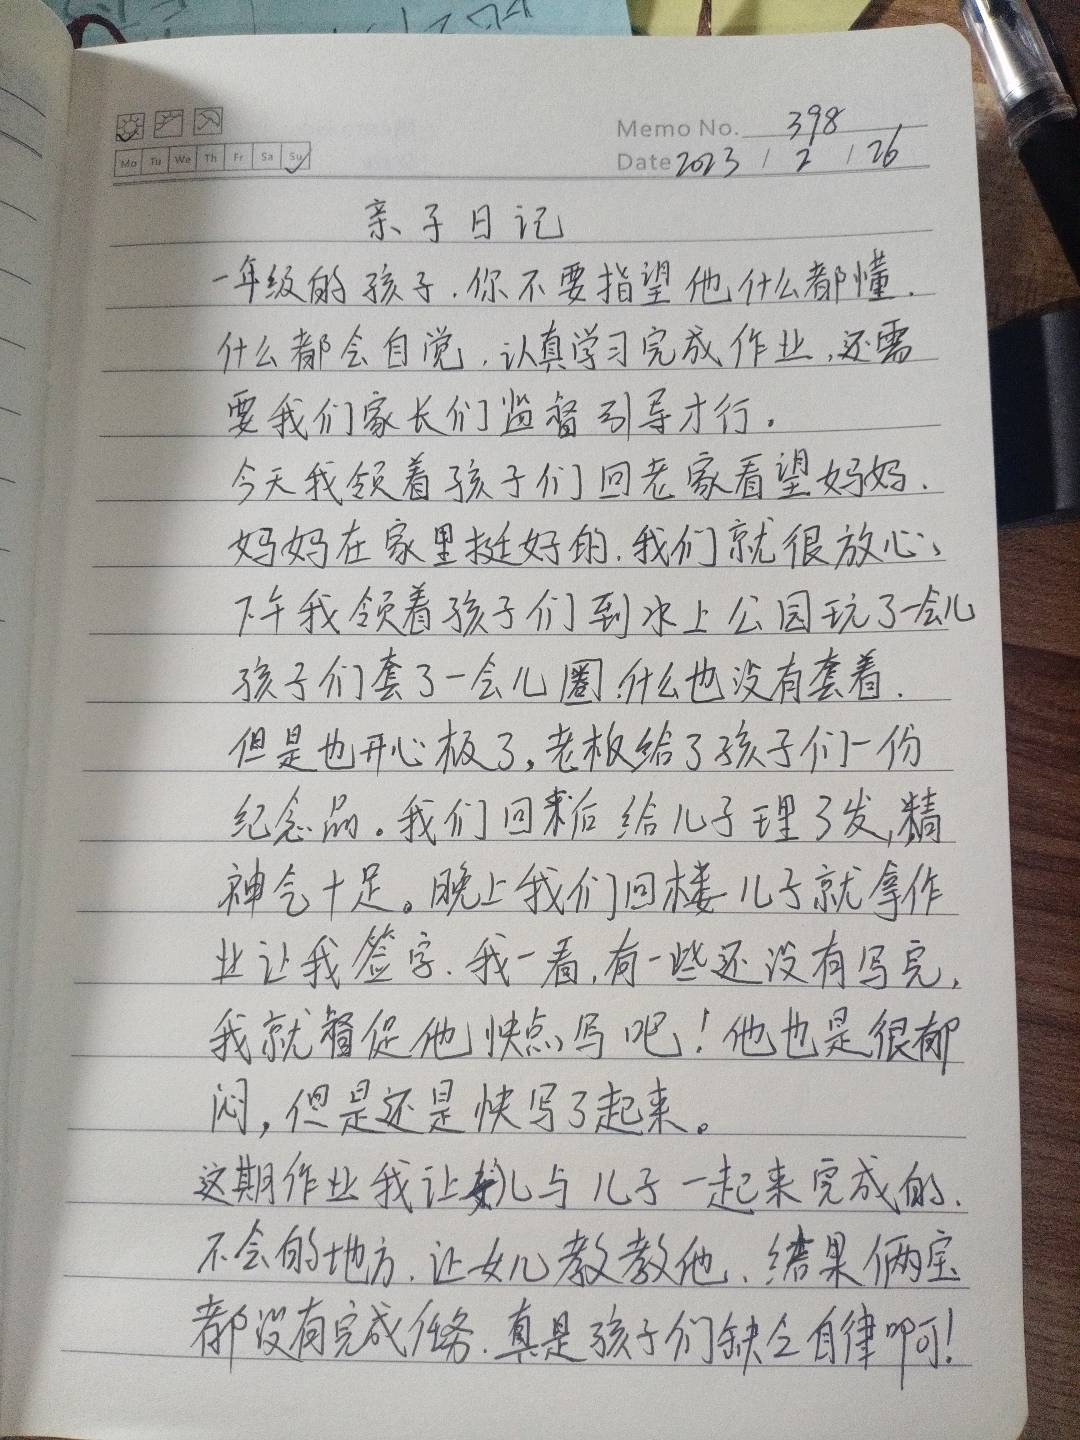 Memo No. 398
Mo Tu We Th Fr Sa Su
Date 2023 / 2 / 26
亲子日记
一年级的孩子.你不要指望他什么都懂.
什么都会自觉.认真学习完成作业,还需
要我们家长们监督引导才行。
今天我领着孩子们回老家看望妈妈.
妈妈在家里挺好的.我们就很放心、
下午我领着孩子们到水上公园玩了一会儿
孩子们套了一会儿圈.什么也没有套着.
但是也开心极了,老板给了孩子们一份
纪念品。我们回来后给儿子理了发,精
神气十足。晚上我们回楼儿子就拿作
业让我签字.我一看,有一些还没有写完,
我就督促他快点写吧!他也是很郁
闷,但是还是快写了起来。
这期作业我让女儿与儿子一起来完成的.
不会的地方.让女儿教教他、结果俩宝
都没有完成任务.真是孩子们缺乏自律啊!